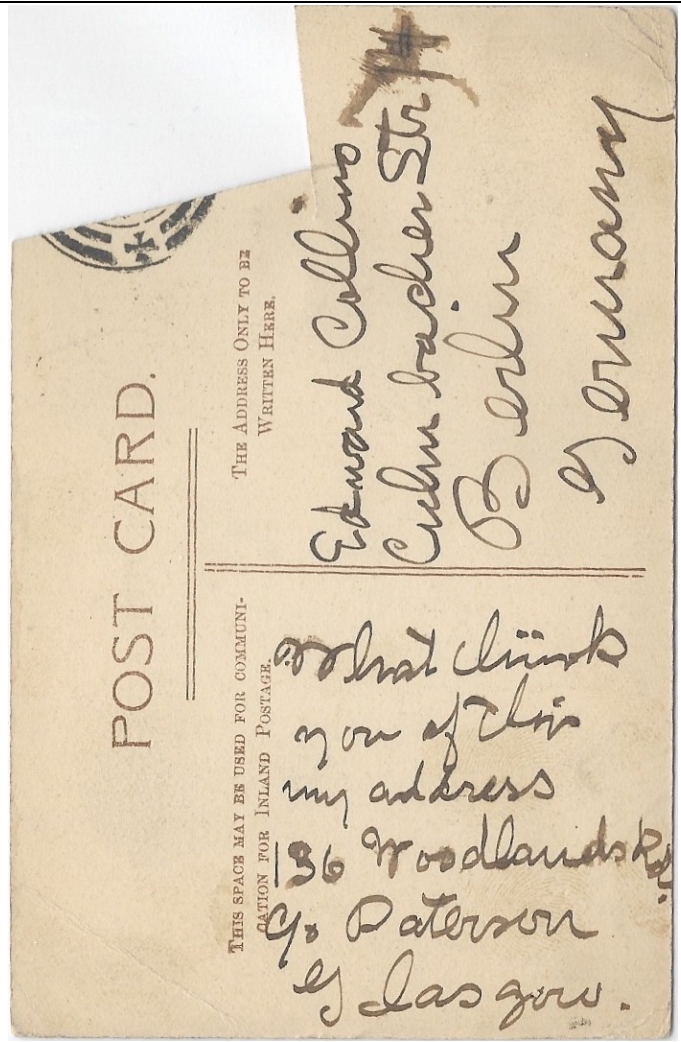 POST CARD.
THIS SPACE MAY BE USED FOR COMMUNI-
CATION FOR INLAND POSTAGE.
THE ADDRESS ONLY TO BE
WRITTEN HERE.
What think
you of this
my address
136 Woodlands Rd.
c/o Paterson
Glasgow.
Edward Collins
Culmbacher Str 14
Berlin
Germany